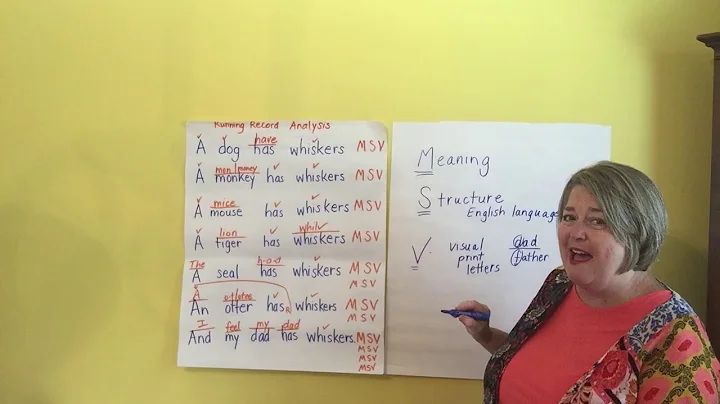 Running Record Analysis
have
A dog has whiskers MSV
A monkey has whiskers MSV
mice
A mouse has whiskers MSV
lion whil
A tiger has whiskers MSV
The h-a-d
A seal has whiskers MSV
MSV
A
An otter has R whiskers MSV
MSV
I feel my dad
And my dad has whiskers. MSV
MSV
MSV
MSV
Meaning
Structure
English language
V. visual dad
print father
letters